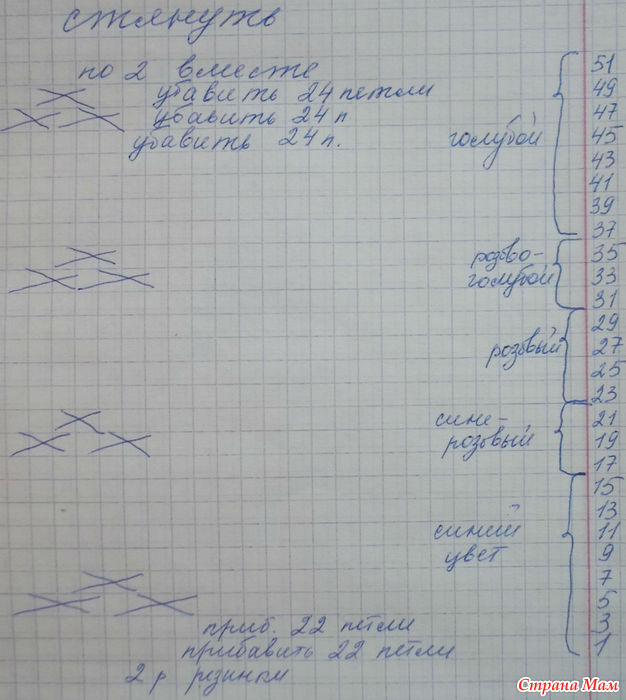 стянуть
по 2 вместе
убавить 24 петли
убавить 24 п
убавить 24 п.
голубой
розово-
голубой
розовый
сине-
розовый
синий
цвет
приб. 22 петли
прибавить 22 петли
2 р резинки
51
49
47
45
43
41
39
37
35
33
31
29
27
25
23
21
19
17
15
13
11
9
7
5
3
1
Страна Мам